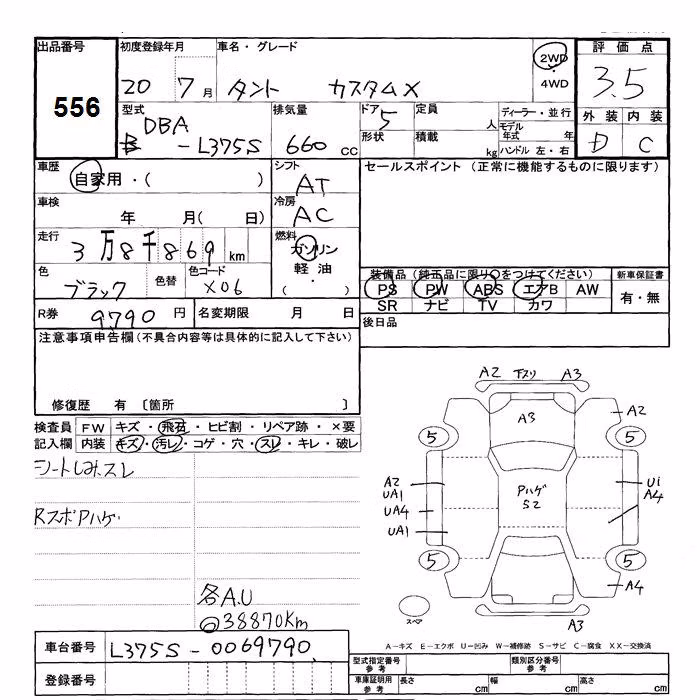 出品番号 初度登録年月 車名・グレード 評価点
556
20 7月 タント カスタムX 2WD・4WD 3.5
型式 排気量 ドア 定員 ディーラー・並行 外装 内装
DBA
-L375S 660cc 5 人 モデル年式 年 D C
形状 積載 kg ハンドル 左・右
車歴 シフト セールスポイント(正常に機能するものに限ります)
自家用・( ) AT
車検 冷房
年 月( 日) AC
走行 燃料
3万8千869km ガソリン
軽油
・( )
色 色替 色コード
ブラック X06
装備品(純正品に限り○をつけてください) 新車保証書
PS PW ABS エアB AW 有・無
SR ナビ TV カワ
R券 9790円 名変期限 月 日
後日品
注意事項申告欄(不具合内容等は具体的に記入して下さい)
修復歴 有 〔箇所 〕
検査員 FW キズ・飛石・ヒビ割・リペア跡・×要
記入欄 内装 キズ・汚レ・コゲ・穴・スレ・キレ・破レ
シートしみ、スレ
RスポPハゲ
各A.U
@38870Km
A2 下スリ A3
A3
A2
5 5
A2
UA1
UA4
UA1
Pハゲ
S2
U1
A4
5 5
A4
スペア
A3
A-キズ E-エクボ U-凹み W-補修跡 S-サビ C-腐食 XX-交換済
車台番号 L375S-0069790
登録番号
型式指定番号 参考 類別区分番号 参考
車庫証明用 参考 長さ cm 幅 cm 高さ cm